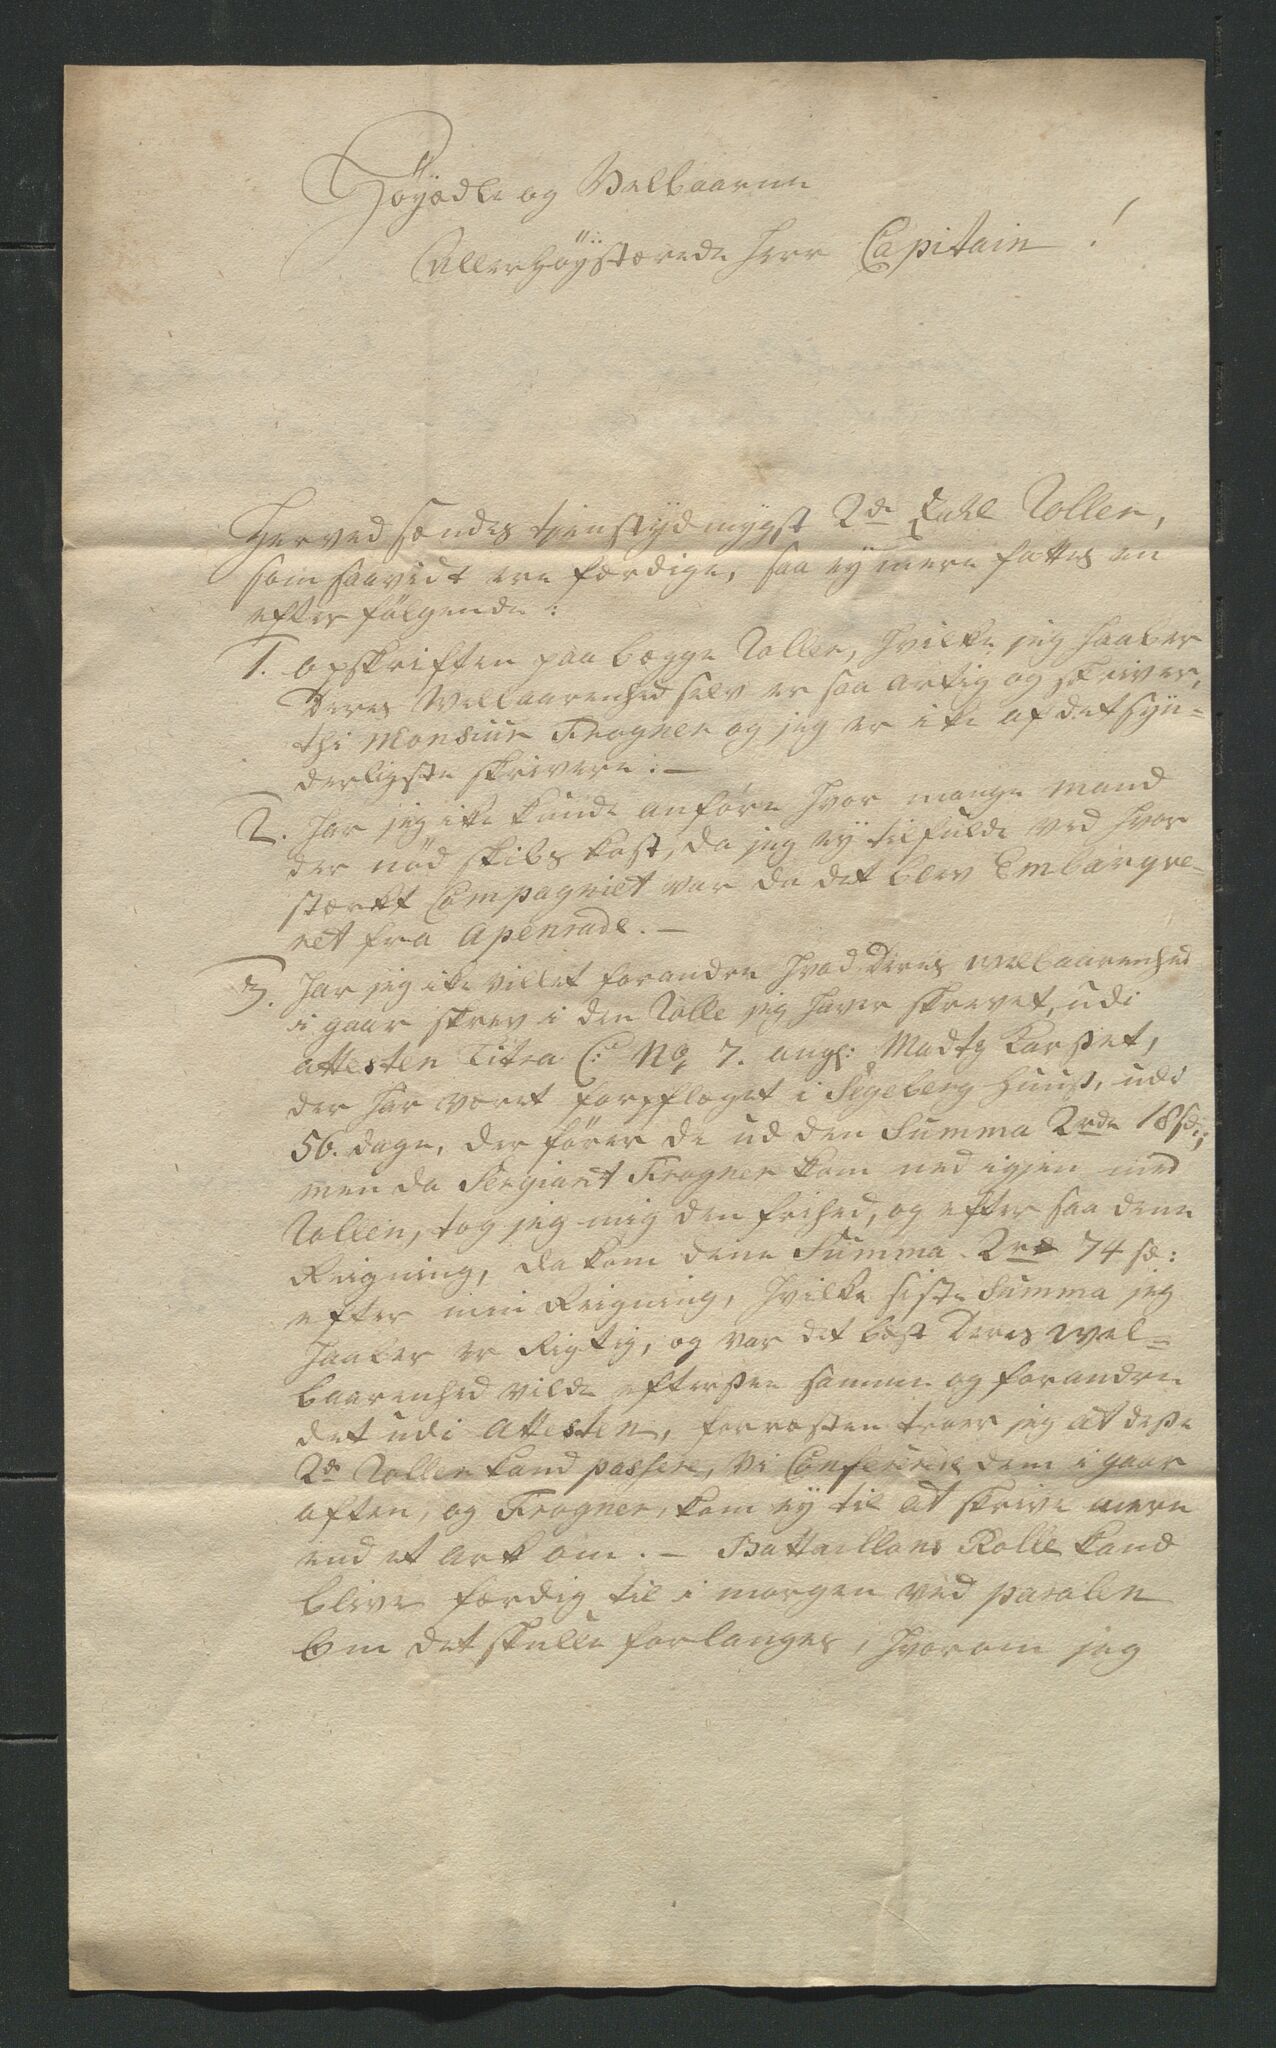 Höyædle og Velbaarne
Allerhöystærede Herr Capitain!
Herved sendes tienstydmygst 2de Rolle,
som saavidt ere færdige, saa ey mere fattes en
efterfölgende:
1. opskriften paa begge Roller, hvilke jeg haaber
Deres Velbaarenhed selv er saa artig og skriver,
thi Monsiur Frogner og jeg er ike af det syn=
derligste skrivere. —
2. har jeg ike kunde anföre hvor mange mand
der nöd skibs kost, da jeg ey til fulde ved hvor
stærkt Compagniet var da det blev Embarqve=
ret fra Apenrade. —
3. har jeg ike villet forandre hvad Deres Velbaarenhed
i gaar skrev i den Rolle jeg haver skrevet, udi
attesten Litra C: No 7. ang: Madtz
der har været forpfleget i Segeberg Huus, udi
56. dage, der förer de ud den Summa 2rde 18 s;
men da Sergiant Frogner kom ned igjen med
Rollen, tog jeg mig den frihed, og eftersaa dene
Reigning, da kom dene Summa 2rd 74 s:
efter min Reigning, hvilke siste Summa jeg
haaber er Rigtig, og var det best Deres Wel=
baarenhed vilde eftersee samme og forandre
det udi attesten, forresten troer jeg at desse
2de Roller kand passere, vi Confererede dem i gaar
aften, og Frogner, kom ey til at skrive mere
end et ark om. — Battaillons Rolle kand
blive færdig til i morgen ved parolen
om det skulle forlanges, hvorom jeg